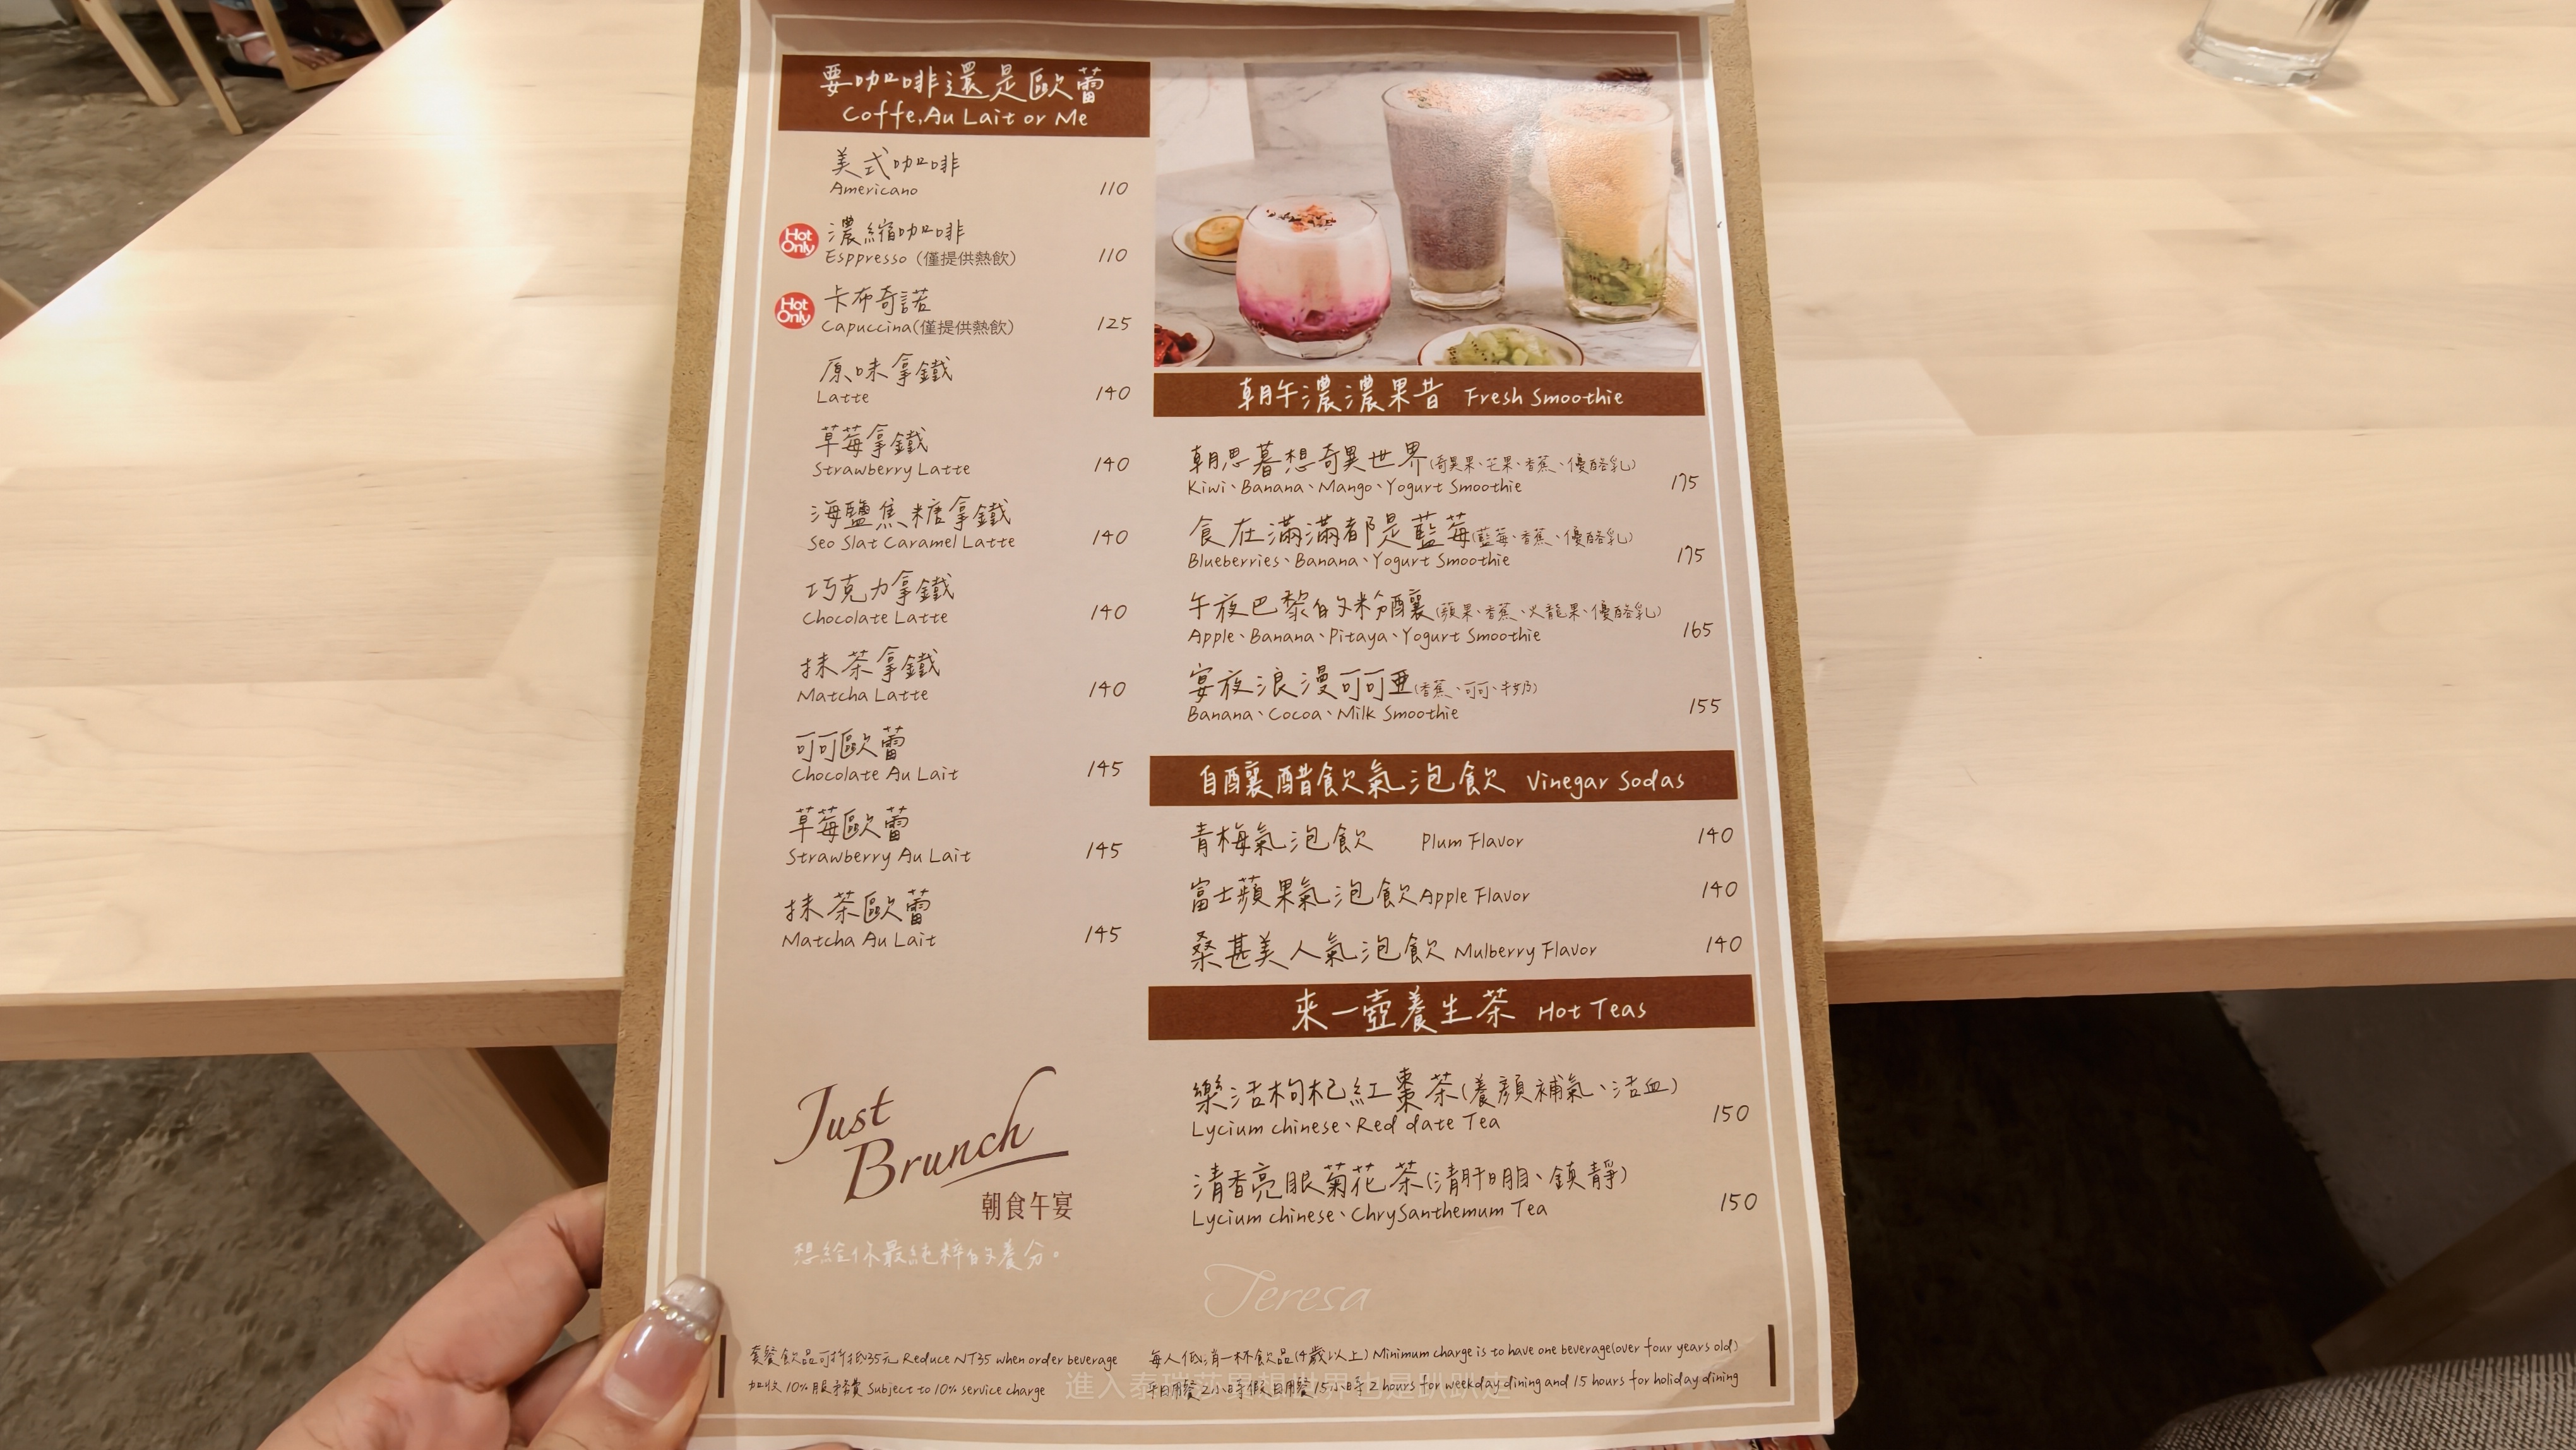 要咖啡還是歐蕾
Coffe,Au Lait or Me
美式咖啡
Americano 110
Hot Only
濃縮咖啡
Esppresso (僅提供熱飲) 110
Hot Only
卡布奇諾
Capuccina(僅提供熱飲) 125
原味拿鐵
Latte 140
草莓拿鐵
Strawberry Latte 140
海鹽焦糖拿鐵
Seo Slat Caramel Latte 140
巧克力拿鐵
Chocolate Latte 140
抹茶拿鐵
Matcha Latte 140
可可歐蕾
Chocolate Au Lait 145
草莓歐蕾
Strawberry Au Lait 145
抹茶歐蕾
Matcha Au Lait 145
Just
Brunch
朝食午宴
想給你最純粹的養分。
朝午濃濃果昔 Fresh Smoothie
朝思暮想奇異世界(奇異果、芒果、香蕉、優酪乳)
Kiwi、Banana、Mango、Yogurt Smoothie 175
食在滿滿都是藍莓(藍莓、香蕉、優酪乳)
Blueberries、Banana、Yogurt Smoothie 175
午夜巴黎的粉釀(蘋果、香蕉、火龍果、優酪乳)
Apple、Banana、Pitaya、Yogurt Smoothie 165
宴夜浪漫可可亞(香蕉、可可、牛奶)
Banana、Cocoa、Milk Smoothie 155
自釀醋飲氣泡飲 Vinegar Sodas
青梅氣泡飲 Plum Flavor 140
富士蘋果氣泡飲 Apple Flavor 140
桑甚美人氣泡飲 Mulberry Flavor 140
來一壺養生茶 Hot Teas
樂活枸杞紅棗茶(養顏補氣、活血)
Lycium chinese、Red date Tea 150
清香亮眼菊花茶(清肝明目、鎮靜)
Lycium chinese、ChrySanthemum Tea 150
Teresa
套餐飲品可折抵35元 Reduce NT35 when order beverage
加收10%服務費 Subject to 10% service charge
每人低消一杯飲品(4歲以上) Minimum charge is to have one beverage(over four years old)
平日用餐2小時假日用餐1.5小時 2 hours for weekday dining and 15 hours for holiday dining
進入泰瑞莎異想世界也是趴趴走